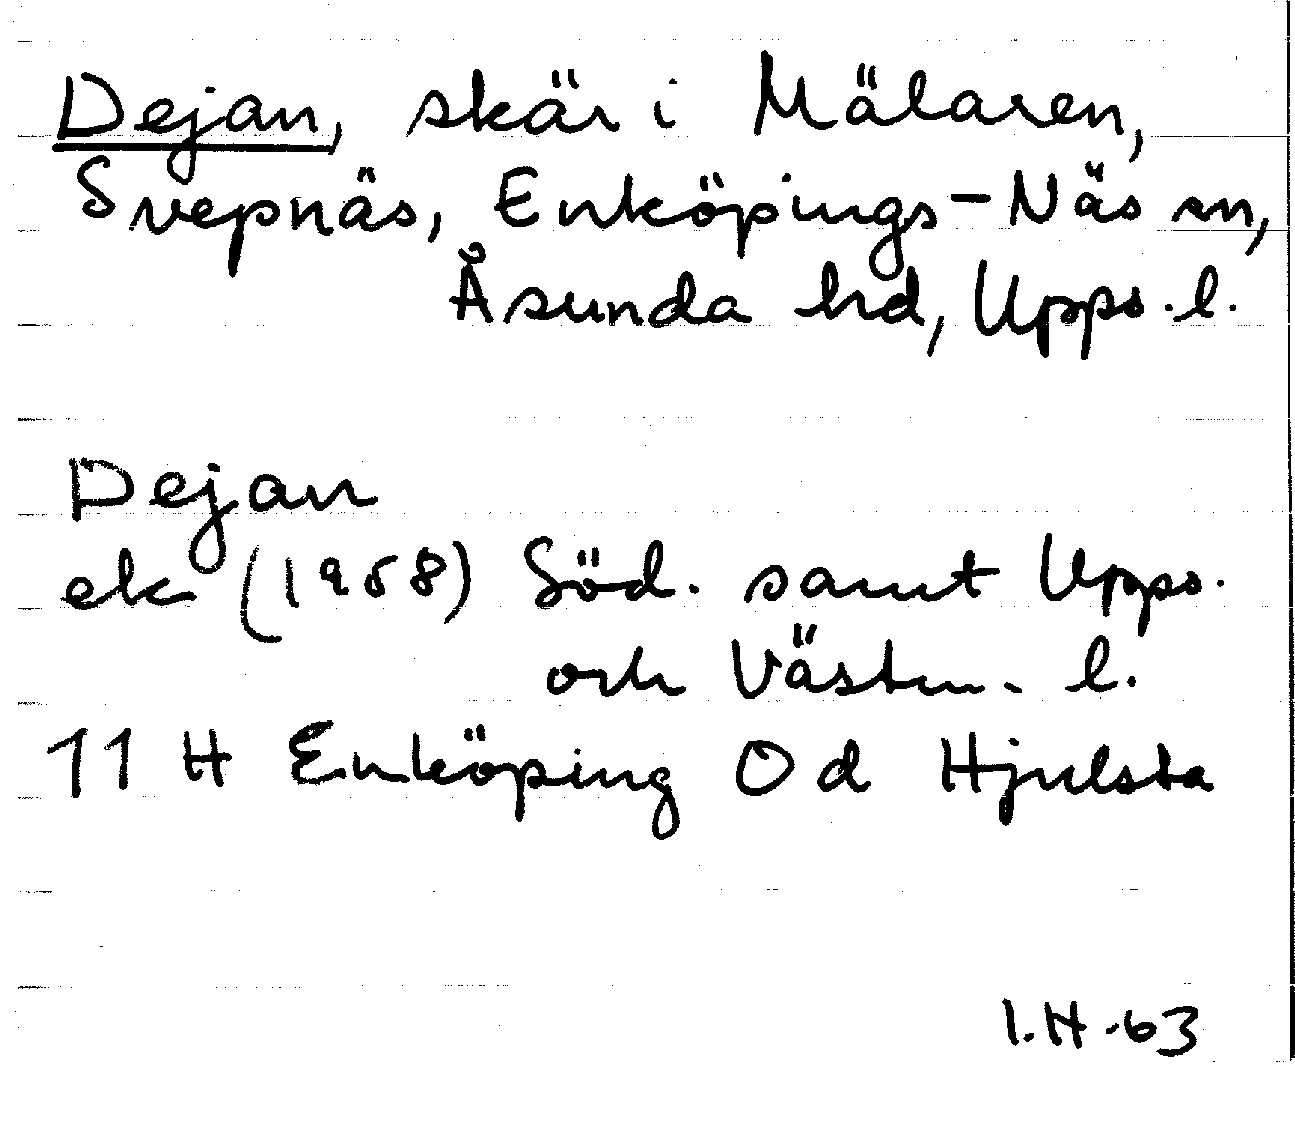 Dejan, skär i Mälaren,
Svepnäs, Enköpings-Näs sn,
Åsunda hd, Upps. l.
Dejan
ek (1958) Söd. samt Upps.
och Västm. l.
11 H Enköping 0 d Hjulsta
I.H -63